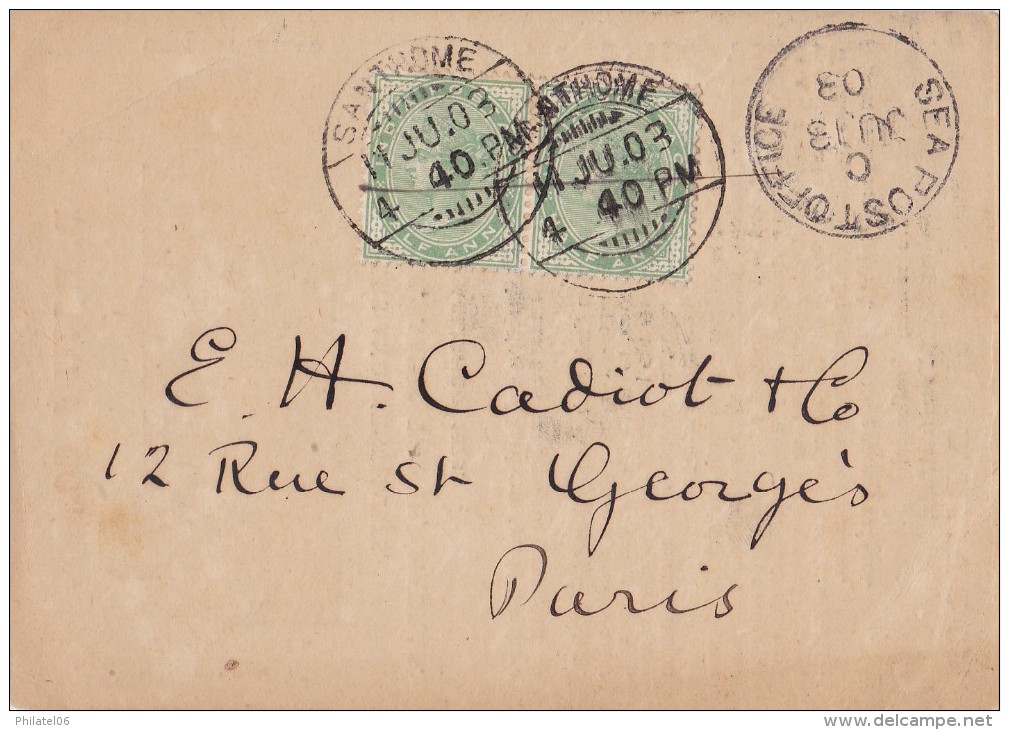 SANTHOME
11 JU.03
4 40 PM
SANTHOME
11 JU.03
4 40 PM
HALF ANNA
HALF ANNA
SEA POST OFFICE
C
JU 13
03
E. H. Cadiot & Co
12 Rue St George's
Paris
Philatel06
delcampe.net